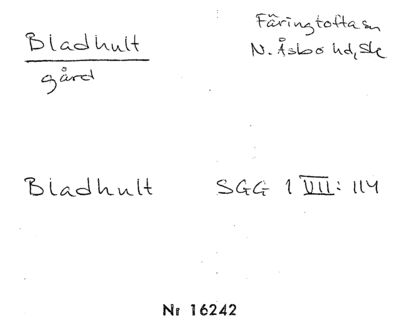 Bladhult
Färingtofta sn
N. Åsbo hd, Sk
gård
Bladhult SGG 1 VIII: 114
Nr 16242